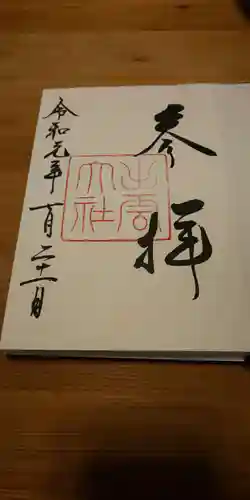 奉拝
出雲
大社
令和元年十月二十一日